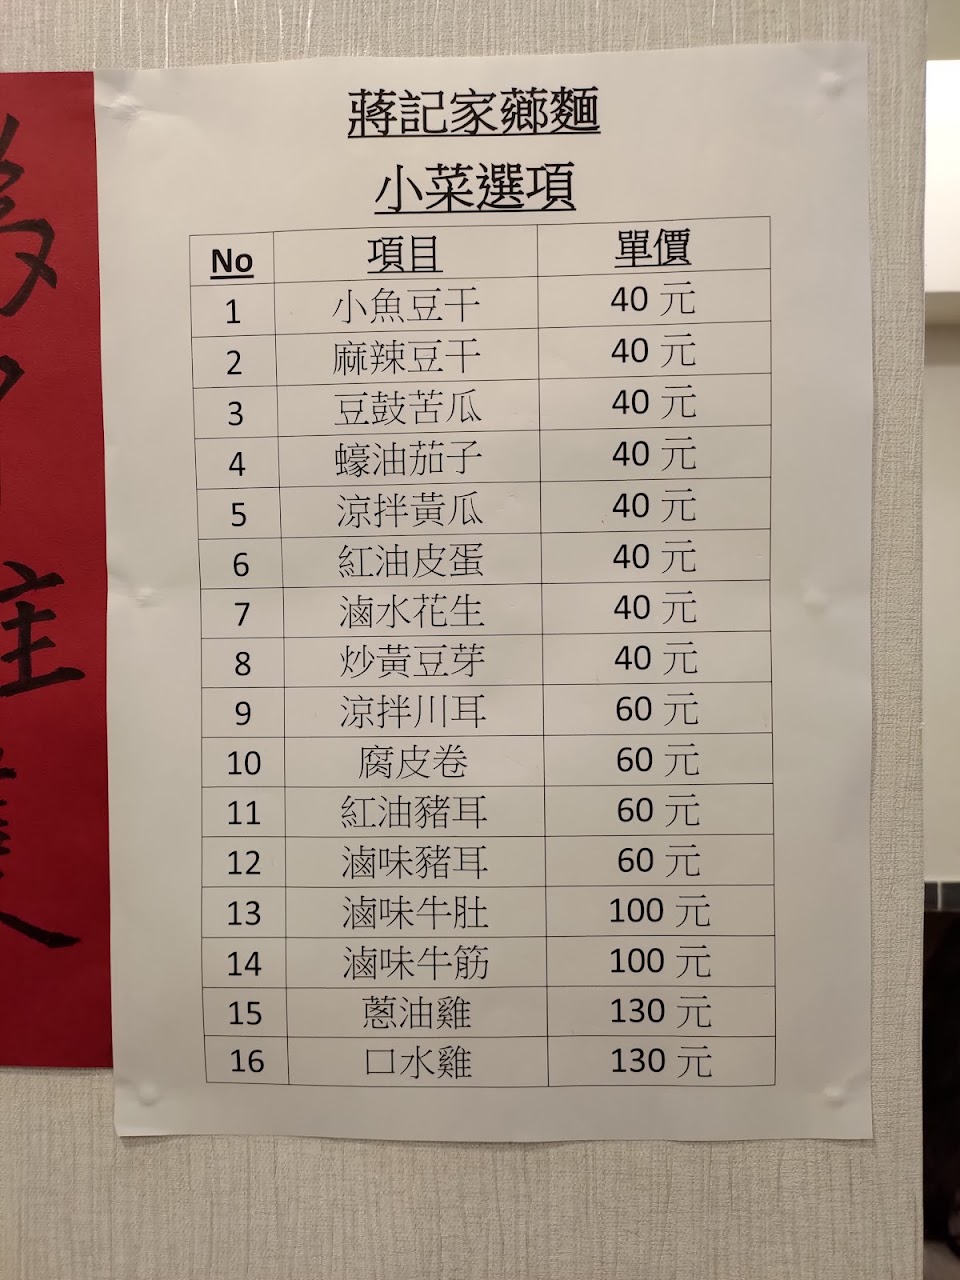 蔣記家薌麵
小菜選項
No 項目 單價
1 小魚豆干 40 元
2 麻辣豆干 40 元
3 豆鼓苦瓜 40 元
4 蠔油茄子 40 元
5 涼拌黃瓜 40 元
6 紅油皮蛋 40 元
7 滷水花生 40 元
8 炒黃豆芽 40 元
9 涼拌川耳 60 元
10 腐皮卷 60 元
11 紅油豬耳 60 元
12 滷味豬耳 60 元
13 滷味牛肚 100 元
14 滷味牛筋 100 元
15 蔥油雞 130 元
16 口水雞 130 元